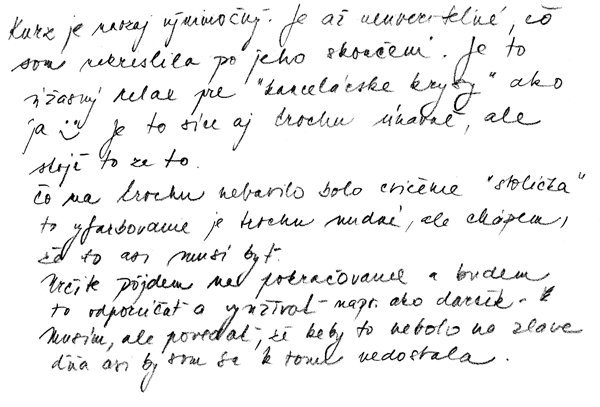 Kurz je naozaj výnimočný. Je až neuveriteľné, čo
som nakreslila po jeho skončení. Je to
úžasný relax pre "kancelárske krysy" ako
ja Je to síce aj trochu únavné, ale
stojí to za to.
Čo ma trochu nebavilo bolo cvičenie "stolička"
to vyfarbovanie je trochu nudné, ale chápem,
že to asi musí byť.
Určite pôjdem na pokračovanie a budem
to odporúčať a využívať napr. ako darček.
Musím, ale povedať, že keby to nebolo na zľave
dňa asi by som sa k tomu nedostala.